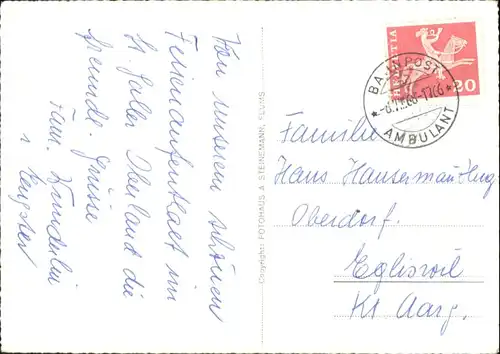 Von unserem schönen
Ferienaufenthalt im
St. Galler Oberland die
freundl. Grüsse
Fam.
Copyright: FOTOHAUS A STEINEMANN, FLUMS
HELVETIA
20
BAHNPOST
AMBULANT
Familie
Hans Hausermann-Hug
Oberdorf.
Egliswil
Kt Aarg.